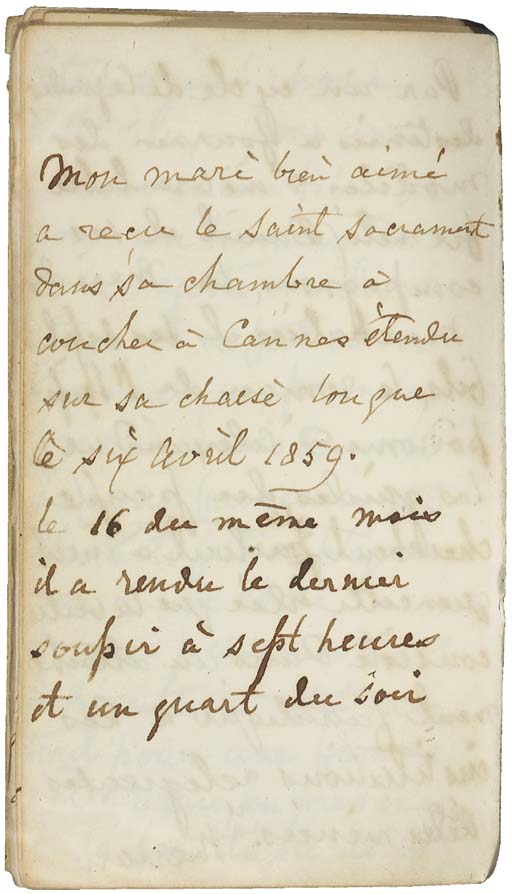 Mon mari bien aimé
a reçu le saint sacrament
dans sa chambre à
coucher à Cannes étendu
sur sa chaise longue
le six avril 1859.
le 16 du même mois
il a rendu le dernier
soupir à sept heures
et un quart du soir